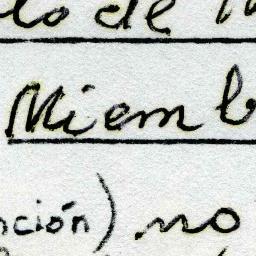 lo de
Miemb
nción) no